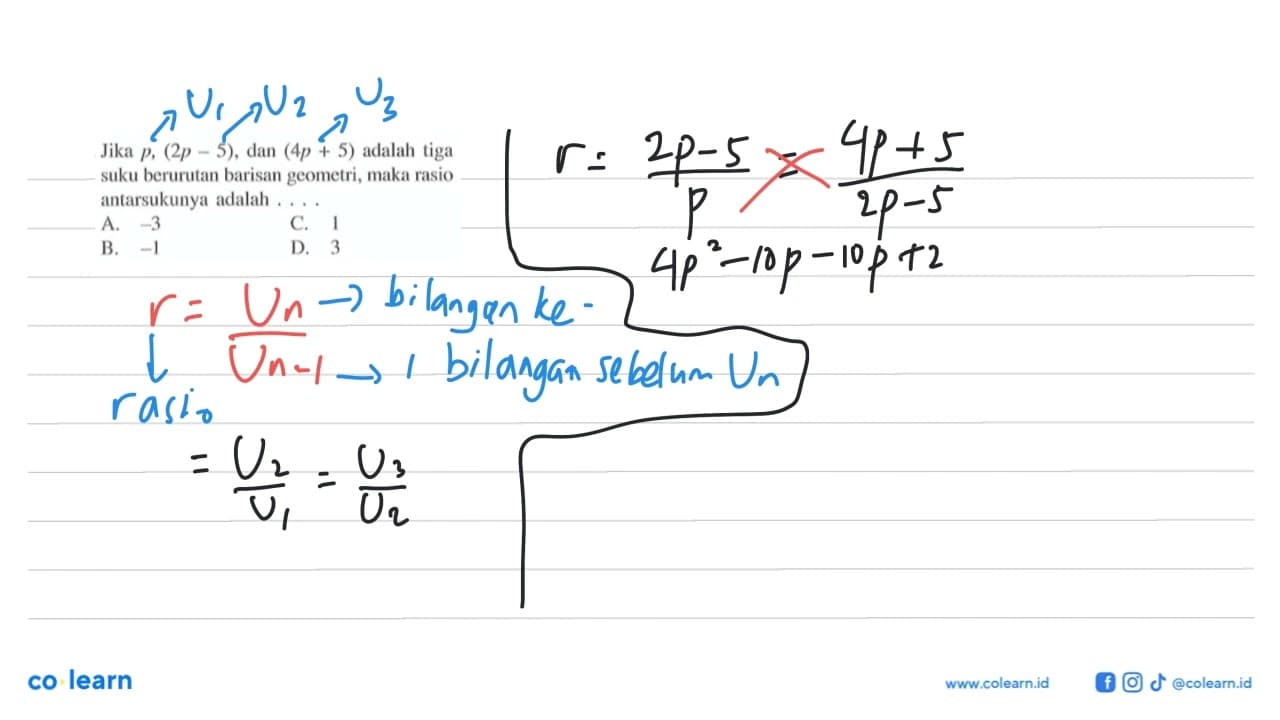 U1 U2 U3
Jika p, (2p – 5), dan (4p + 5) adalah tiga
suku berurutan barisan geometri, maka rasio
antarsukunya adalah . . . .
A. –3 C. 1
B. –1 D. 3
r = Un → bilangan ke -
Un-1 → 1 bilangan sebelum Un
rasio
= U2/U1 = U3/U2
r = (2p-5)/p = (4p+5)/(2p-5)
4p²-10p-10p+2
co learn
www.colearn.id
@colearn.id